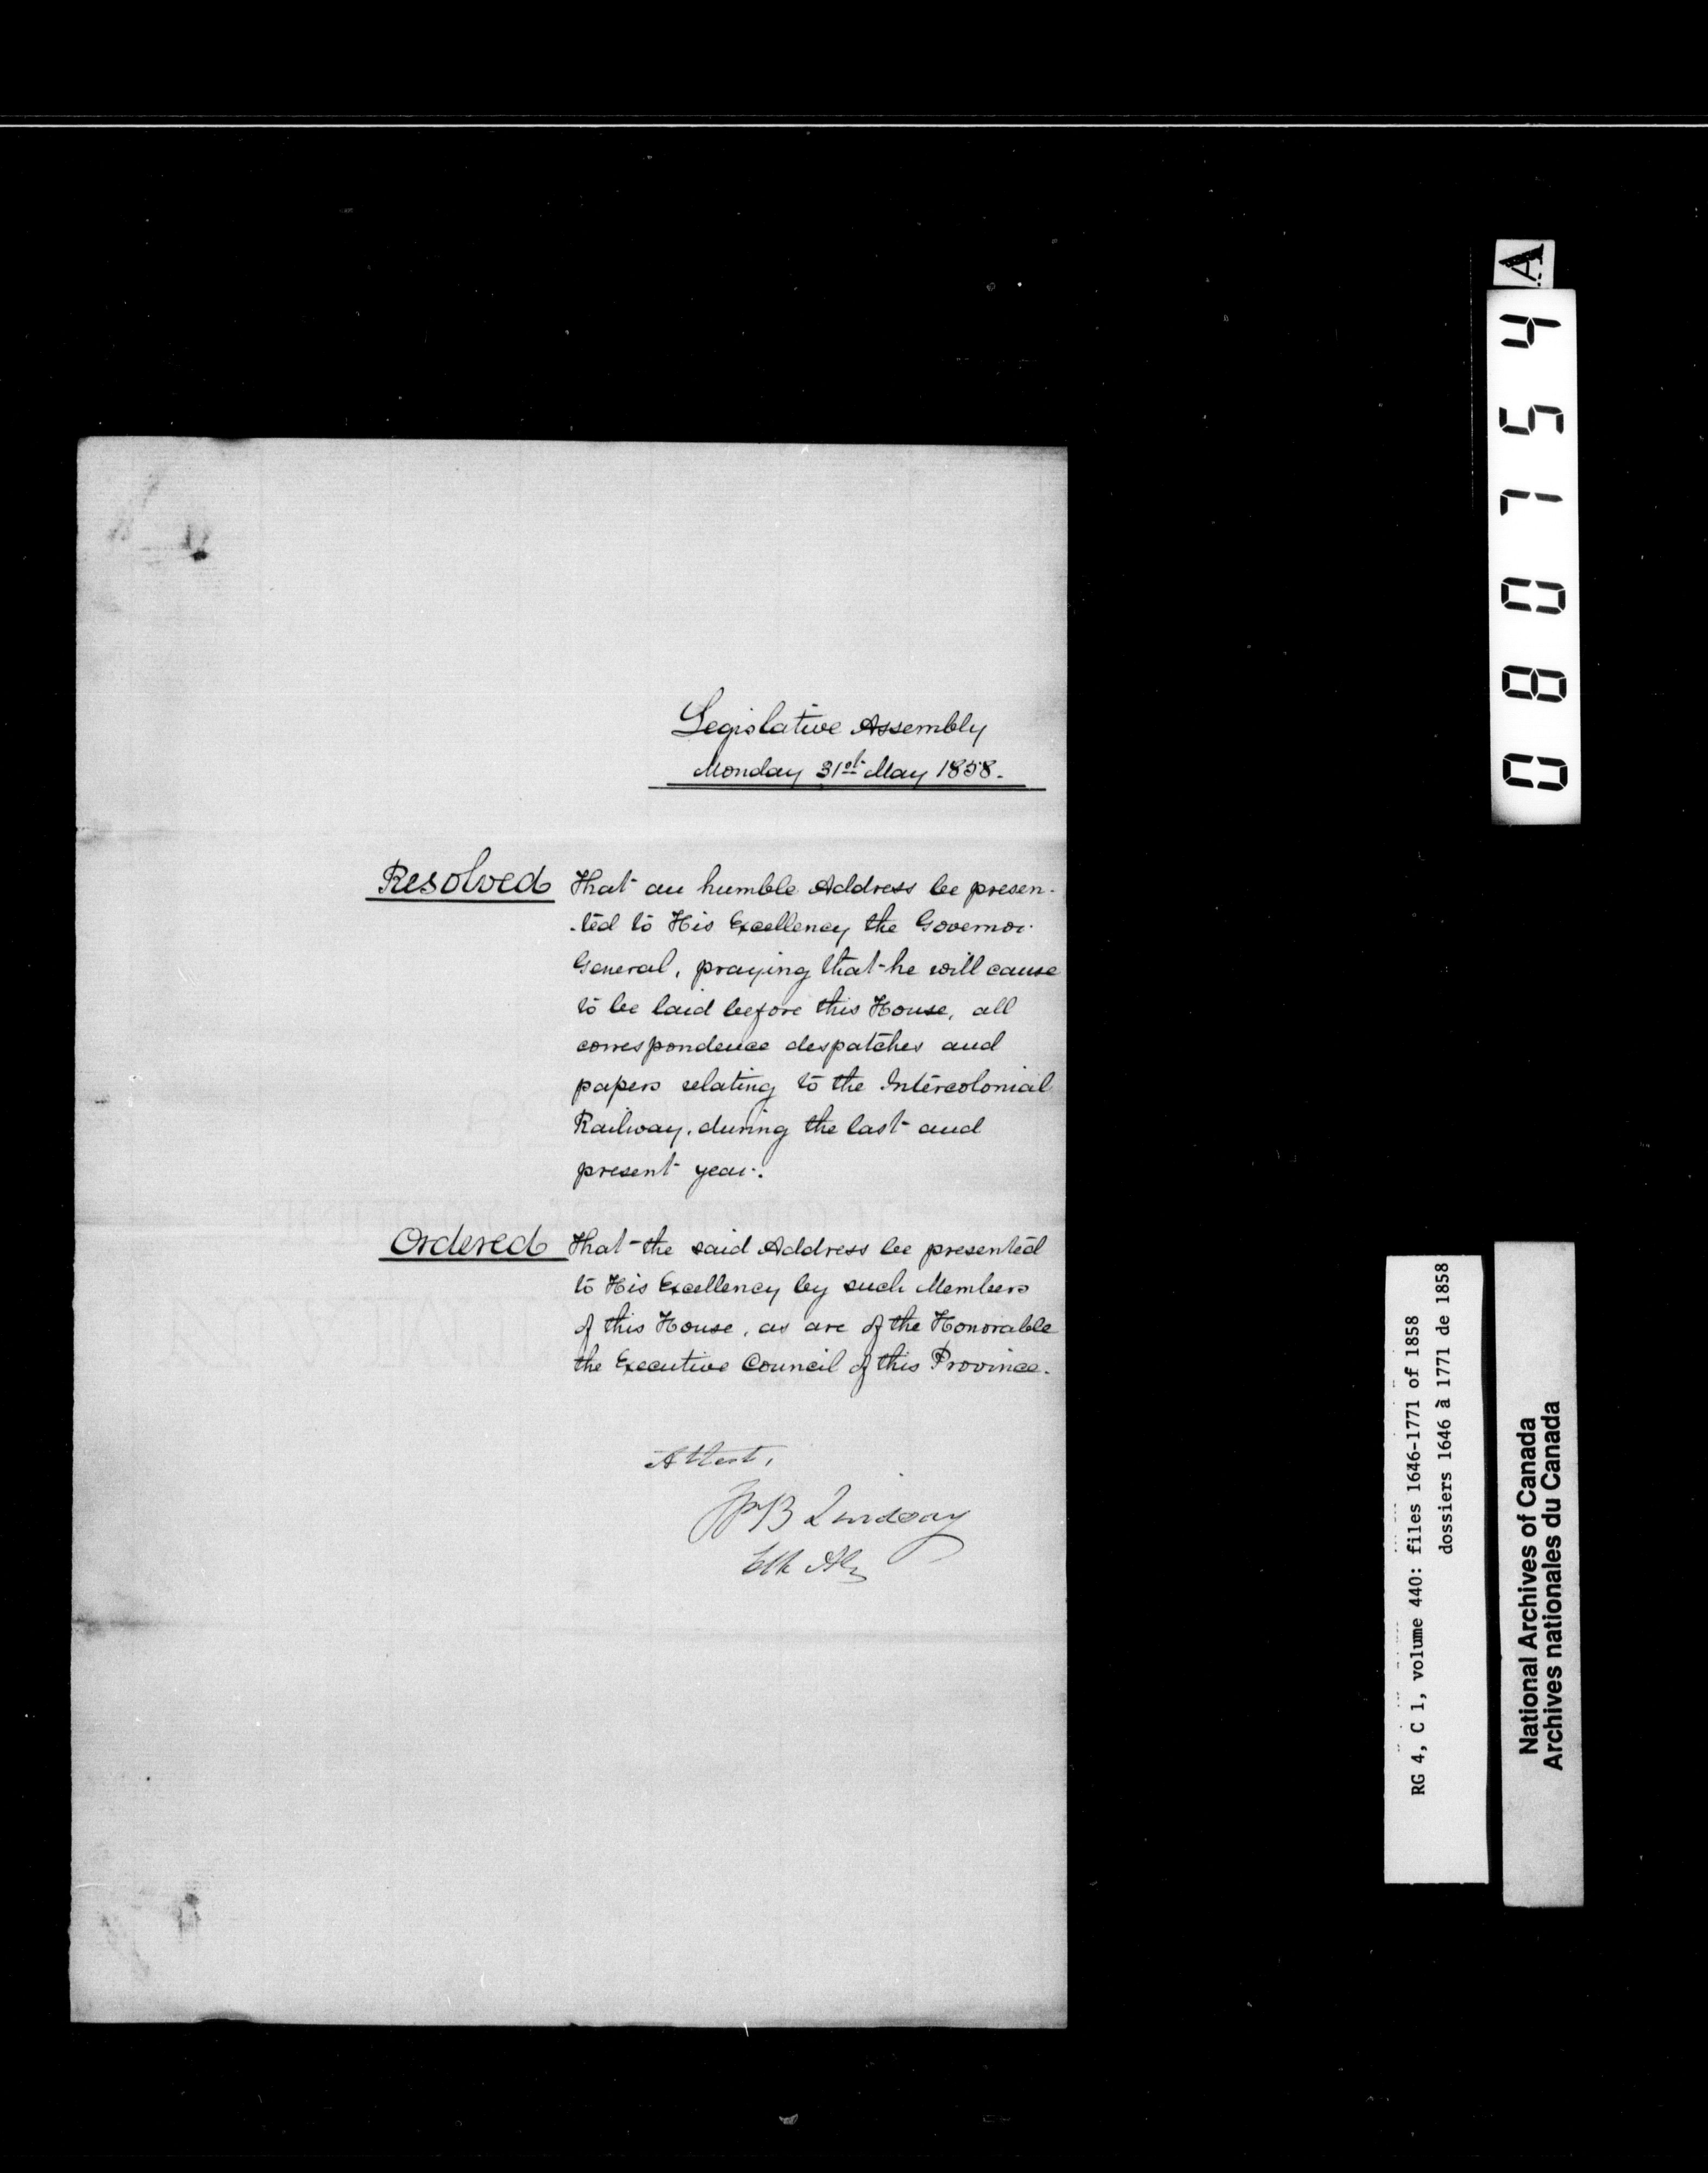 Legislative Assembly
Monday 31st May 1858.
Resolved That an humble Address be presen-
-ted to His Excellency the Governor
General, praying that he will cause
to be laid before this House, all
correspondence despatches and
papers relating to the Intercolonial
Railway, during the last and
present year.
Ordered That the said Address be presented
to His Excellency by such Members
of this House, as are of the Honorable
the Executive Council of this Province.
Attest,
Lindsay
Clk
A
080754
RG 4, C 1, volume 440: files 1646-1771 of 1858
dossiers 1646 à 1771 de 1858
National Archives of Canada
Archives nationales du Canada